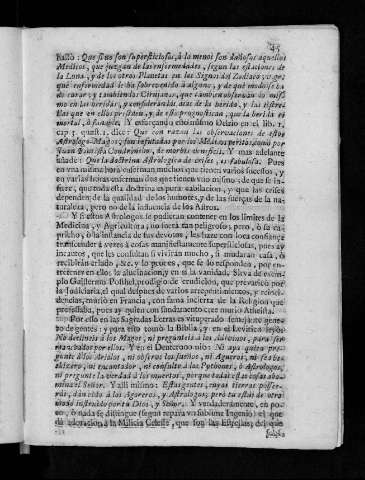 45
hallò: Que si no son supersticiosos, à lo menos son dañosos aquellos
Medicos, que juzgan de las enfermedades, segun las estaciones de
la Luna, y de los otros Planetas en los Signos del Zodiaco; v.gr.
què enfermedad le ha sobrevenido à alguno, y de què modo se ha
de curar; y tambien los Cirujanos, que tambien observan lo mismo
en las heridas, y consideran los dias de la herida, y las
que en ellos presiden, y de esto prognostican, que la herida es
mortal, ò sanable. Y esforzando el doctissimo Delrio en el lib. 1.
cap. 3. quæst. 1. dice: Que con razon las observaciones de estos
Astrologo-Magos, son refutadas por los Medicos peritos, como por
Juan Bautista
añade: Que la doctrina Astrologica de crises, es fabulosa. Pues
en una misma hora enferman muchos que tienen varios sucessos, y
en varias horas enferman dos que tienen uno mismo: de que se infiere,
que toda esta doctrina es pura cabilacion, y que las crises
dependen de la qualidad de los humores, y de las fuerças de la naturaleza,
pero no de la influencia de los Astros.
Y si estos Astrologos se pudieran contener en los limites de la
Medicina, y Agricultura, no fuera tan peligroso; pero, ò su capricho,
ò la instancia de sus devotos, les hace con loca confianza
transcender à veres à cosas manifiestamente supersticiosas, pues ay
incautos, que les consultan si vivirán mucho, si mudaràn casa, ò
recibiràn criado, &c. y lo peor es, que se lo responden, por entretener
en ellos la alucinacion, y en sì la vanidad. Sirva de exemplo
Guillermo Posthel, prodigio de erudicion, que prevaricò por
la Judiciaria, el qual despues de varios arrepentimientos, y reincidencias,
muriò en Francia, con fama incierta de la Religion que
professaba, pues ay quien con fundamento cree muriò Atheista.
Por esso en las Sagradas Letras es vituperado semejante genero
de gentes; y para esto tomò la Biblia, y en el Levitico leyòs:
No declineis à los Magos, ni pregunteis à los Adivinos, para
por ellos. Y en el Deuteronomio: Ni aya quien pregunte
à los Ariolos, ni observe los sueños, ni Agueros, ni sea hechizero,
ni encantador, ni consulte à los Pythones, ò Astrologos,
ni pregunte la verdad à los muertos, porque todas estas cosas abomina
el Señor. Y alli mismo: Estas gentes, cuyas tierras posseeràs,
dan oìdo à los Agoreros, y Astrologos; pero tu estàs de otro
modo instruìdo por tu Dios, y Señor. Y verdaderamente, en poco,
ò nada se distingue (segun repara un sublime Ingenio) el que
dà adoracion à la Milicia Celeste, que son las Estrellas, del que